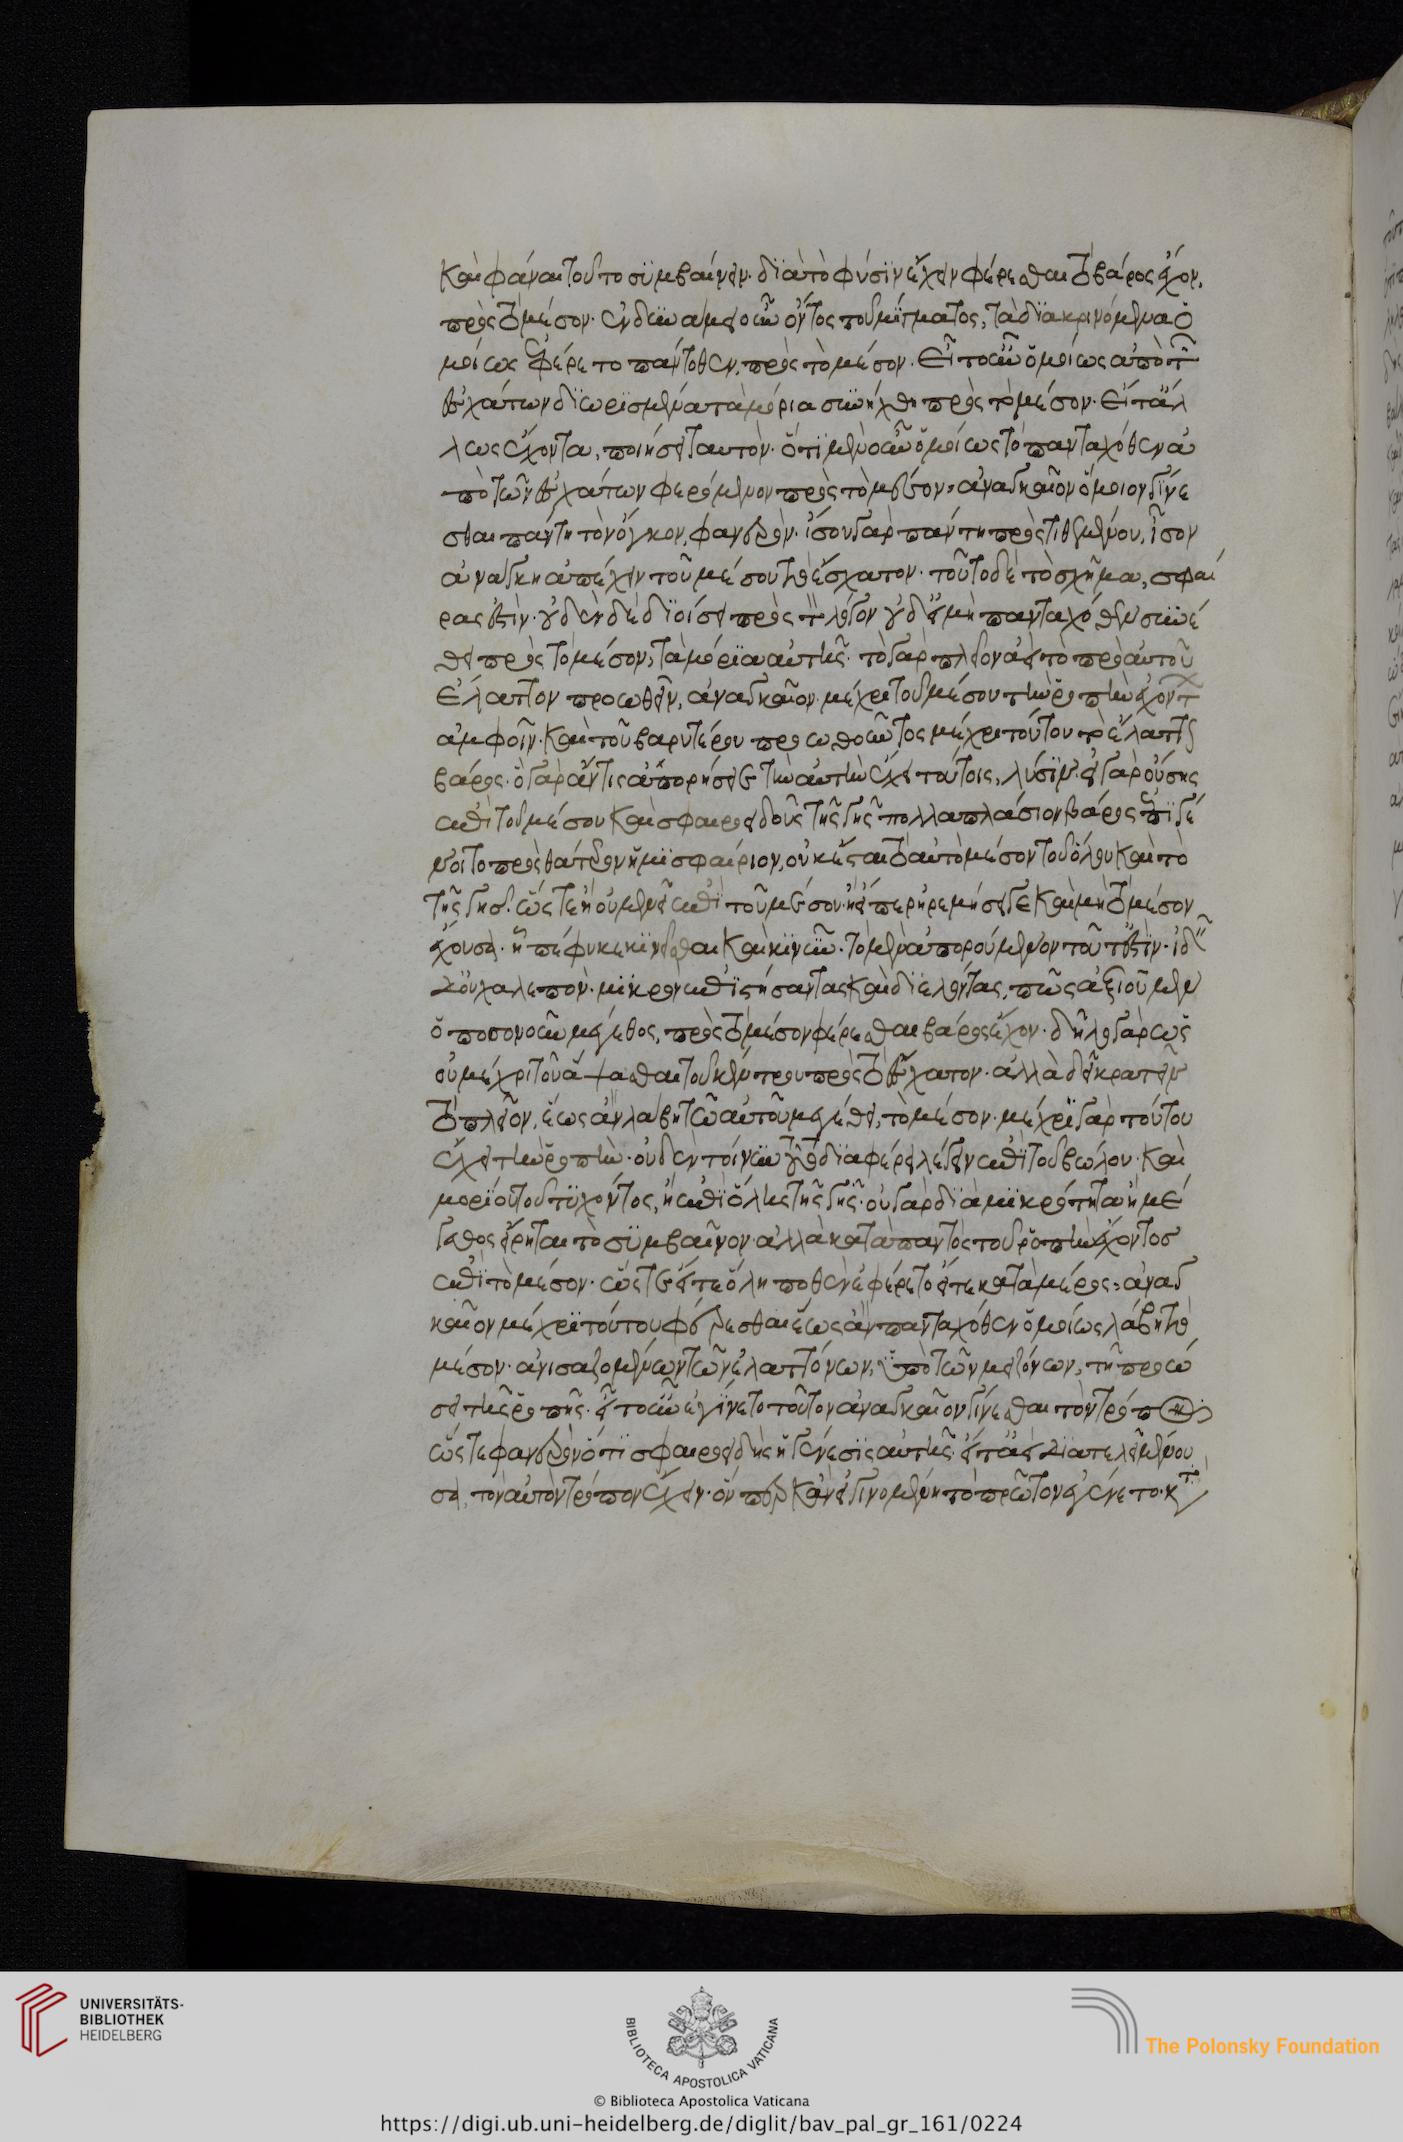 καὶ φάναι τοῦτο συμβαίνειν. διὰ τὸ φύσιν ἔχειν φέρεσθαι τὸ βάρος ἔχον,
πρὸς τὸ μέσον. ἐν δυνάμει οὖν ὄντος τοῦ μίγματος, τὰ διακρινόμενα ὁ
μοίως ἐφέρετο πάντοθεν, πρὸς τὸ μέσον. εἴτ οὖν ὁμοίως ἀπὸ τῶν
ἐσχάτων διωρισμένα τὰ μόρια συνήχθη πρὸς τὸ μέσον. εἴτ ἄλ
λως ἔχοντα, ποιήσει ταυτόν. ὅτι μὲν οὖν ὁμοίως τὸ πανταχόθεν ἀ
πὸ τῶν ἐσχάτων φερόμενον πρὸς τὸ μέσον, ἀναγκαῖον ὅμοιον γίνε
σθαι πάντη τὸν ὄγκον, φανερόν. ἴσου γὰρ πάντη προστιθεμένου, ἴσον
ἀνάγκη ἀπέχειν τοῦ μέσου τὸ ἔσχατον. τοῦτο δὲ τὸ σχῆμα, σφαί
ρας ἐστίν. οὐδὲν δὲ διοίσει πρὸς τὸν λόγον οὐδ εἰ μὴ πανταχόθεν συνέ
θει πρὸς τὸ μέσον, τὰ μόρια αὐτῆς. τὸ γὰρ πλεῖον ἀεὶ τὸ πρὸ αὐτοῦ
ἔλαττον προωθεῖν, ἀναγκαῖον. μέχρι τοῦ μέσου τὴν ῥοπὴν ἐχόντων
ἀμφοῖν. καὶ τοῦ βαρυτέρου προωθοῦντος μέχρι τούτου τὸ ἔλαττον
βάρος. ὃ γὰρ ἄν τις ἀπορήσειε τὴν αὐτὴν ἔχει τούτοις, λύσιν. εἰ γὰρ οὔσης
ἐπὶ τοῦ μέσου καὶ σφαιροειδοῦς τῆς γῆς πολλαπλάσιον βάρος ἐπιγέ
νοιτο πρὸς θάτερον ἡμισφαίριον, οὐκ ἔσται τὸ αὐτὸ μέσον τοῦ ὅλου καὶ τὸ
τῆς γῆς. ὥστε ἢ οὐ μενεῖ ἐπὶ τοῦ μέσου. ἢ εἴπερ ἠρεμήσει γε καὶ μὴ τὸ μέσον
ἔχουσα. ᾗ πέφυκε κινεῖσθαι καὶ νῦν. τὸ μὲν ἀπορούμενον τοῦτ ἐστίν. ἰδεῖν
δ οὐ χαλεπὸν. μικρὸν ἐπιστήσαντας καὶ διελόντας, πῶς ἀξιοῦμεν
ὁποσονοῦν μέγεθος, πρὸς τὸ μέσον φέρεσθαι βάρος ἔχον. δῆλον γὰρ ὡς
οὐ μέχρι τοῦ ἅψασθαι τοῦ κέντρου πρὸς τὸ ἔσχατον. ἀλλὰ δεῖ κρατεῖν
τὸ πλεῖον, ἕως ἂν λάβη τῶ αὐτοῦ μεγέθει, τὸ μέσον. μέχρι γὰρ τούτου
ἔχει τὴν ῥοπὴν. οὐδὲν τοίνυν τοῦτο διαφέρει λέγειν ἐπὶ τοῦ βώλου. καὶ
μορίου τοῦ τυχόντος, ἢ ἐπὶ ὅλης τῆς γῆς. οὐ γὰρ διὰ μικρότητα ἢ μέ
γεθος εἴρηται τὸ συμβαῖνον. ἀλλὰ κατὰ παντὸς τοῦ ῥοπὴν ἔχοντος
ἐπὶ τὸ μέσον. ὥστε εἴτε ὅλη ποθὲν ἐφέρετο εἴτε κατὰ μέρος, ἀναγ
καῖον μέχρι τούτου φέρεσθαι ἕως ἂν πανταχόθεν ὁμοίως λάβη τὸ
μέσον. ἀνισαζομένων τῶν ἐλαττόνων, ὑπὸ τῶν μειζόνων, τῆ προώ
σει τῆς ῥοπῆς. εἴτ οὖν ἐγίνετο τοῦτον ἀναγκαῖον γίνεσθαι τὸν τρόπον
ὥστε φανερὸν ὅτι σφαιροειδὴς ἡ γένεσις αὐτῆς. εἴτ ἀεὶ διατελεῖ μένου
σα, τὸν αὐτὸν τρόπον ἔχειν. ὅνπερ κἂν εἰ γινομένη τὸ πρῶτον ἐγένετο. κατὰ
UNIVERSITÄTS-
BIBLIOTHEK
HEIDELBERG
BIBLIOTECA APOSTOLICA VATICANA
The Polonsky Foundation
© Biblioteca Apostolica Vaticana
https://digi.ub.uni-heidelberg.de/diglit/bav_pal_gr_161/0224